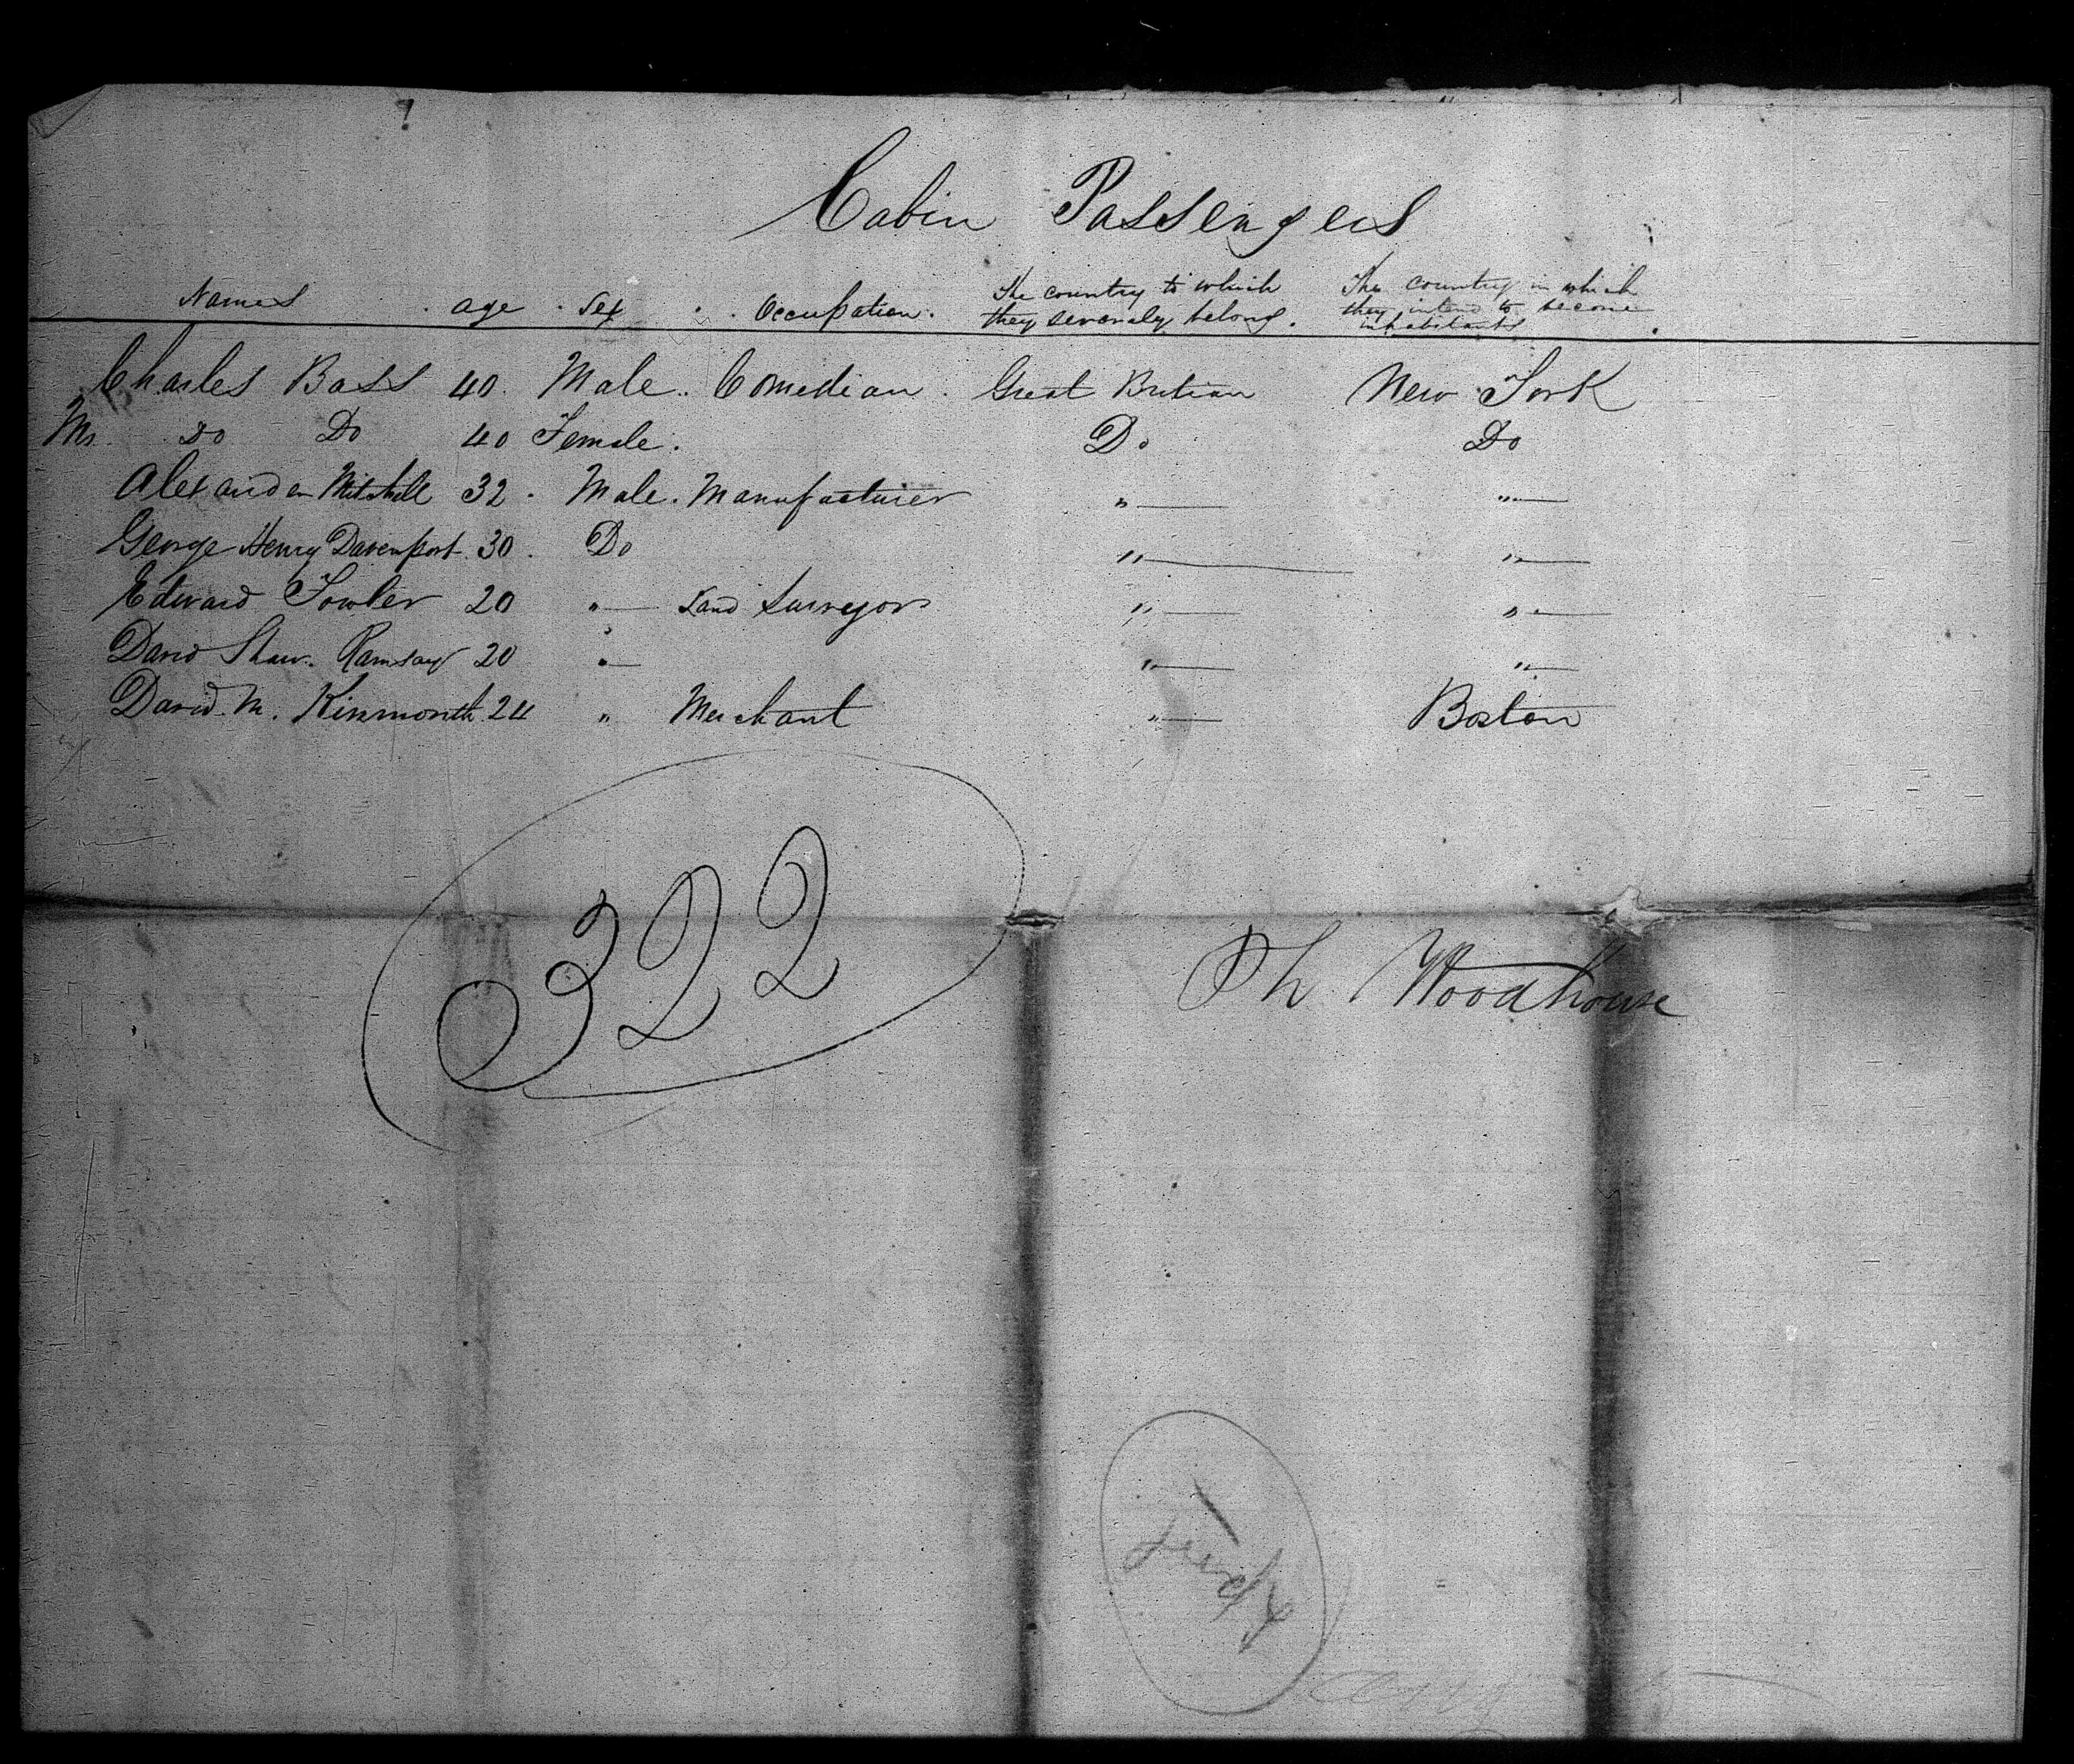 Cabin Passengers
Names . age . Sex . . Occupation . The country to which they severaly belong . The country in which they intend to become inhabitants .
Charles Bass 40 . Male . Comedian . Great Britian New York
Mrs. Do Do 40 Female . Do Do
Alexander Mitchell 32 . Male . Manufacturer " "
George Henry Davenport 30 . Do " "
Edward Fowler 20 " Land Surveyor " "
David Shaw Ramsay 20 " " "
David M. Kinmonth 24 " Merchant " Boston
322
Woodhouse